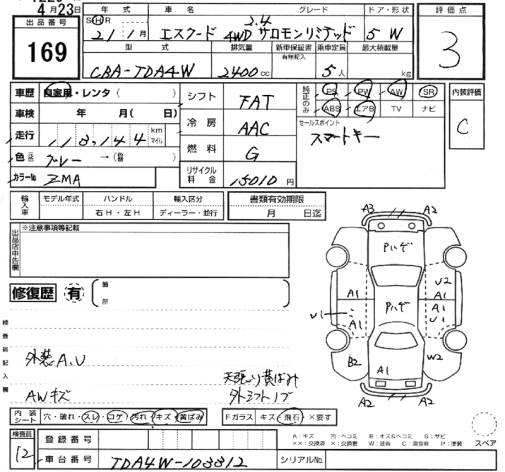 4月23日
出品番号 169
年式 21 1月
車名 エスクード 4WD 2.4 サロモンリミテッド
グレード
ドア・形状 5 W
評価点 3
型式 CBA-TDA4W
排気量 2400 cc
新車保証書 有無記入
乗車定員 5人
最大積載量 kg
車歴 自家用・レンタ( )
車検 年 月( 日)
走行 118,144 km マイル
色 グレー →( )
カラーNo ZMA
シフト FAT
冷房 AAC
燃料 G
リサイクル料金 15010 円
純正のみ PS PW AW SR
ABS エアB TV ナビ
セールスポイント
スマートキー
内装評価 C
輸入車 モデル年式 ハンドル 右H・左H 輸入区分 ディーラー・並行
書類有効期限 月 日迄
出品店申告欄 ※注意事項等記載
修復歴 有 箇所
検査員記入欄
外装A,U
天張り黄ばみ
AWキズ
外シフトノブ
A3 A2
Pハゲ
A1 U2
Pハゲ A1
U1 A1 U1
B2 A1 W2
A2 A2
内装シート 穴・破れ・スレ・コゲ・汚れ・キズ・黄ばみ
Fガラス キズ・飛石・×要す
スペア
検査員 12
登録番号
車台番号 TDA4W-103312
シリアルNo.